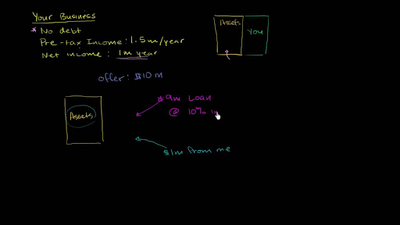 Your Business
* No debt
Pre-tax Income: 1.5m/year
Net income: 1m year
Assets
You
offer: $10 m
Assets
$9m Loan
@ 10% in
$1m from me